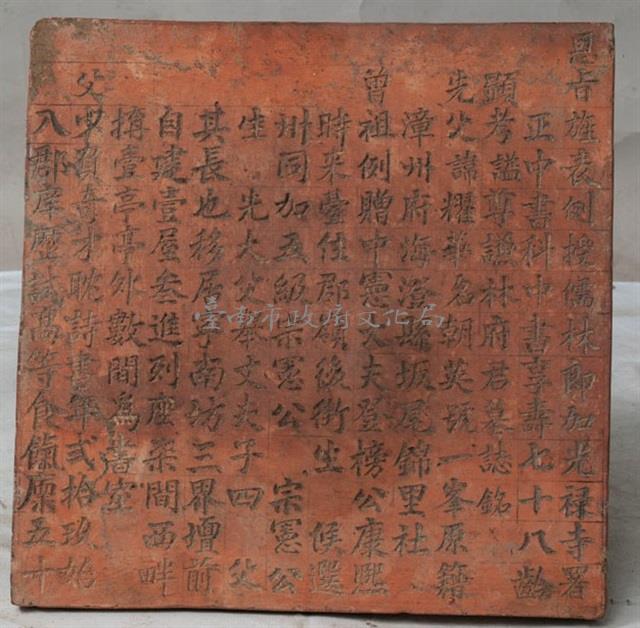 恩旨旌表例授儒林郎加光祿寺署
正中書科中書享壽七十八齡
顯考謚尊謐林府君墓誌銘
先父諱耀華名朝英號一峯原籍
漳州府海澄縣坂尾錦里社
曾祖例贈中憲大夫登榜公康熙
時來臺住郡嶺後街生 候選
州同加五級宗憲公 宗憲公
生 先大父奉文丈子四 父
其長也移居寧南坊三界壇前
自建壹屋叁進列座柒間西畔
搆壹亭亭外數間為書室
父少負奇才耽詩書年弍拾玖始
入郡庠歷試高等食餼廩五十
臺南市政府文化局